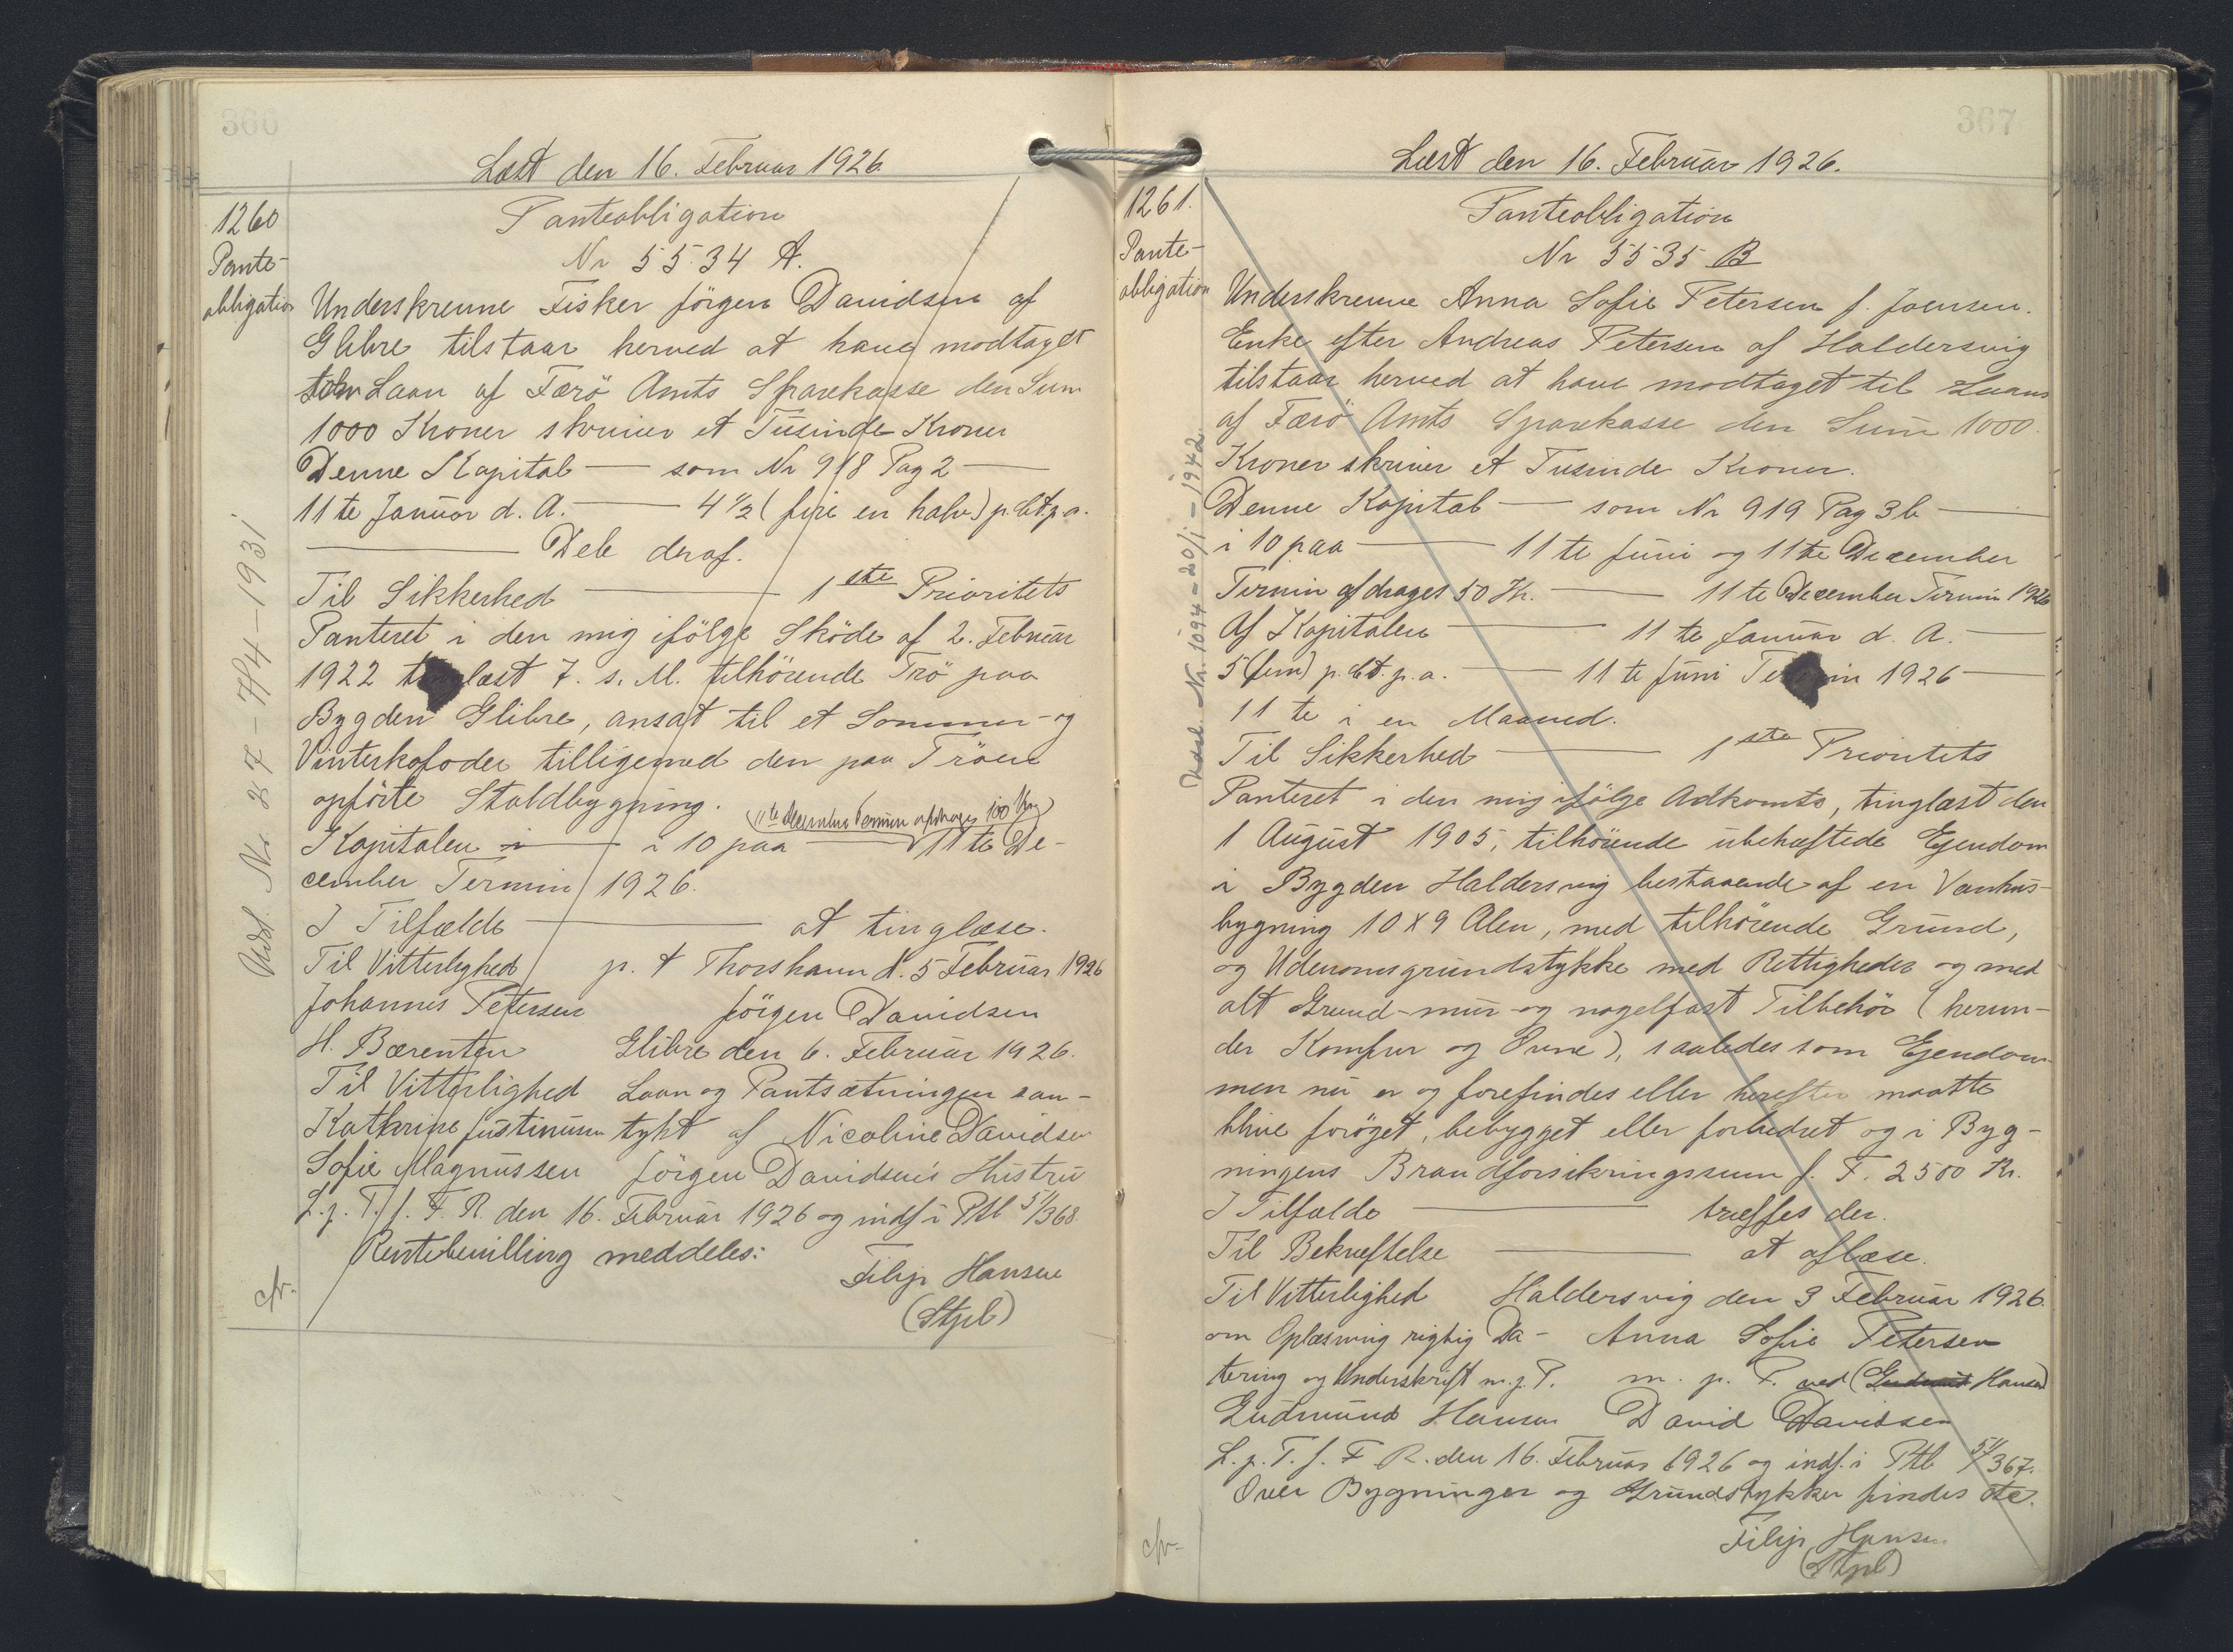 366
Læst den 16. Februar 1926.
1260
Pante-
obligation
Panteobligation
Nr 5534 A.
Underskrevne Fisker Jörgen Davidsen af
Glibre tilstaar herved at have modtaget
som Laan af Færö Amts Sparekasse den Sum
1000 Kroner skriver et Tusinde Kroner
Denne Kapital — som Nr 918 Pag 2 —
11te Januar d. A. — 4 1/2 (fire en halv) p. Ct p. a.
— Dele deraf.
Til Sikkerhed — 1ste Prioritets
Panteret i den mig ifölge Sköde af 2. Februar
1922 tinglæst 7. s. M. tilhörende Trö paa
Bygden Glibre, ansat til et Sommer- og
Vinterkofoder tilligemed den paa Tröen
opförte Staldbygning.
(11te December Termin afdrages 100 Kr)
Kapitalen i — i 10 paa — 11te De-
cember Termin 1926.
I Tilfælde — at tinglæse.
Til Vitterlighed p. t Thorshavn d. 5 Februar 1926
Johannes Petersen Jörgen Davidsen
H. Bærentsen Glibre den 6. Februar 1926.
Til Vitterlighed Laan og Pantsætningen sam-
Kathrine Justinussen tykt af Nicoline Davidsen
Sofie Magnussen Jörgen Davidsen's Hustru
L. p. T. f. F. R. den 16. Februar 1926 og indf i Ptb 51/368.
Rentebevilling meddeles:
Filip Hansen
(Stpl)
cfr.
Udsl. Nr. 27 - 7/4 - 1931
367
Læst den 16. Februar 1926.
1261.
Pante-
obligation
Panteobligation
Nr 5535 B
Underskrevne Anna Sofie Petersen f. Joensen.
Enke efter Andreas Petersen af Haldersvig
tilstaar herved at have modtaget til Laans
af Færö Amts Sparekasse den Sum 1000.
Kroner skriver et Tusinde Kroner.
Denne Kapital — som Nr 919 Pag 3b —
i 10 paa — 11te Juni og 11te December
Termin afdrages 50 Kr. — 11te December Termin 1926
Af Kapitalen — 11te Januar d. A. —
5 (fem) p. Ct. p. a. — 11te Juni Termin 1926 —
11te i en Maaned.
Til Sikkerhed — 1ste Prioritets
Panteret i den mig ifölge Adkomst, tinglæst den
1 August 1905, tilhörende ubehæftede Ejendom
i Bygden Haldersvig bestaaende af en Vaanhus-
bygning 10 x 9 Alen, med tilhörende Grund,
og Udenomsgrundstykke med Rettigheder og med
alt Grund- mur- og nagelfast Tilbehör (herun-
der Komfur og Ovne), saaledes som Ejendom-
men nu er og forefindes eller herefter maatte
blive foröget, bebygget eller forbedret og i Byg-
ningens Brandforsikringssum f. T. 2500 Kr.
I Tilfælde — træffes der.
Til Bekræftelse — at aflæse.
Til Vitterlighed Haldersvig den 3 Februar 1926.
om Oplæsning rigtig Da- Anna Sofie Petersen
tering og Underskrift m. p. P. m. p. P. ved (Gudmund Hansen)
Gudmund Hansen David Davidsen
L. p. T. f. F. R. den 16. Februar 1926 og indf. i Ptb 51/367.
Over Bygninger og Grundstykker findes etc.
Filip Hansen
(Stpl)
cfr.
Udsl. Nr. 1094 - 20/1 - 1942.